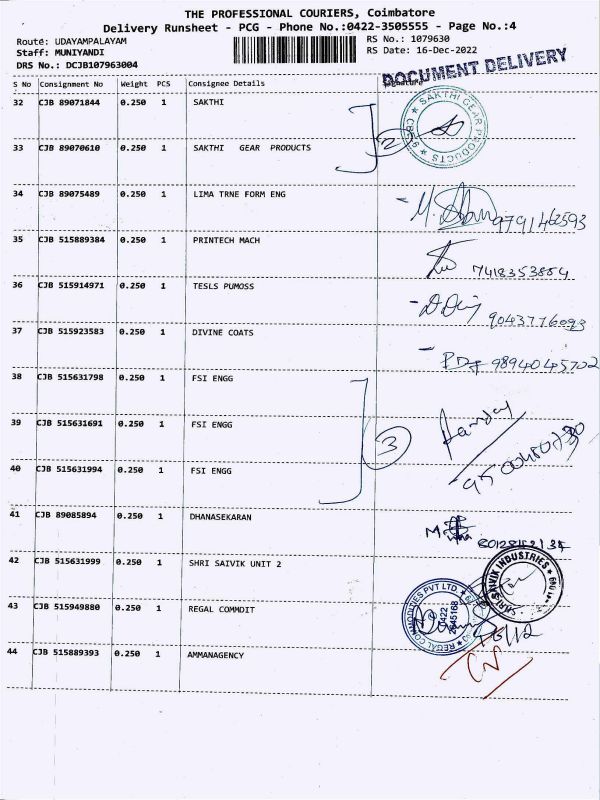 THE PROFESSIONAL COURIERS, Coimbatore
Delivery Runsheet - PCG - Phone No.:0422-3505555 - Page No.:4
Route: UDAYAMPALAYAM RS No.: 1079630
Staff: MUNIYANDI RS Date: 16-Dec-2022
DRS No.: DCJB107963004
DOCUMENT DELIVERY
S No Consignment No Weight PCS Consignee Details Signature
32 CJB 89071844 0.250 1 SAKTHI
SAKTHI GEAR PRODUCTS
2
33 CJB 89070610 0.250 1 SAKTHI GEAR PRODUCTS
34 CJB 89075489 0.250 1 LIMA TRNE FORM ENG
9791462593
35 CJB 515889384 0.250 1 PRINTECH MACH
7418353884
36 CJB 515914971 0.250 1 TESLS PUMOSS
9043776093
37 CJB 515923583 0.250 1 DIVINE COATS
9894045702
38 CJB 515631798 0.250 1 FSI ENGG
39 CJB 515631691 0.250 1 FSI ENGG
3
40 CJB 515631994 0.250 1 FSI ENGG
41 CJB 89085894 0.250 1 DHANASEKARAN
42 CJB 515631999 0.250 1 SHRI SAIVIK UNIT 2
SHRI SAIVIX INDUSTRIES
43 CJB 515949880 0.250 1 REGAL COMMDIT
REGAL COMMODITIES PVT LTD.
0422
2645168
44 CJB 515889393 0.250 1 AMMANAGENCY